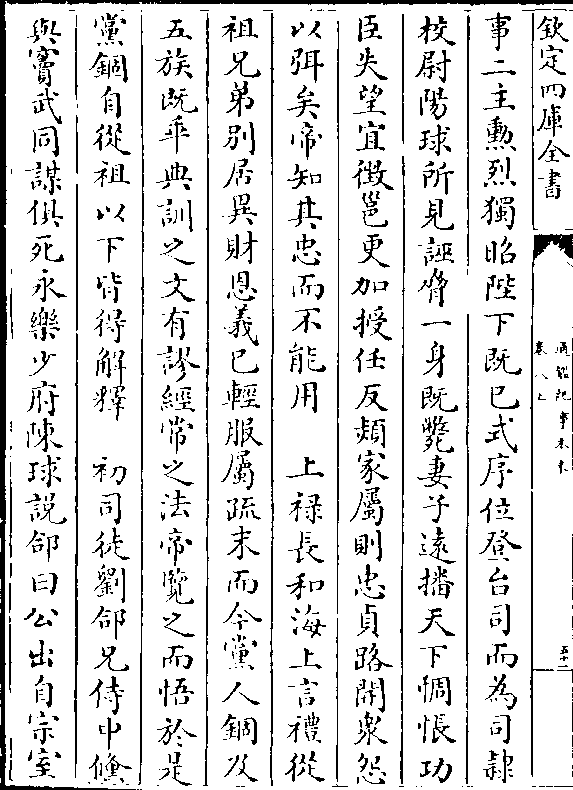 欽定四庫全書
通鑑紀事本末
卷八上
五十二
事二主勳烈獨昭陛下既已式序位登台司而為司隸
校尉陽球所見誣脅一身既斃妻子遠播天下惆悵功
臣失望宜徴邕更加授任反熲家屬則忠貞路開衆怨
以弭矣帝知其忠而不能用　上禄長和海上言禮從
祖兄弟别居異財恩義已輕服屬疏末而今黨人錮及
五族既乖典訓之文有謬經常之法帝覽之而悟於是
黨錮自從祖以下皆得解釋　初司徒劉郃兄侍中鯈
與竇武同謀俱死永樂少府陳球説郃曰公出自宗室